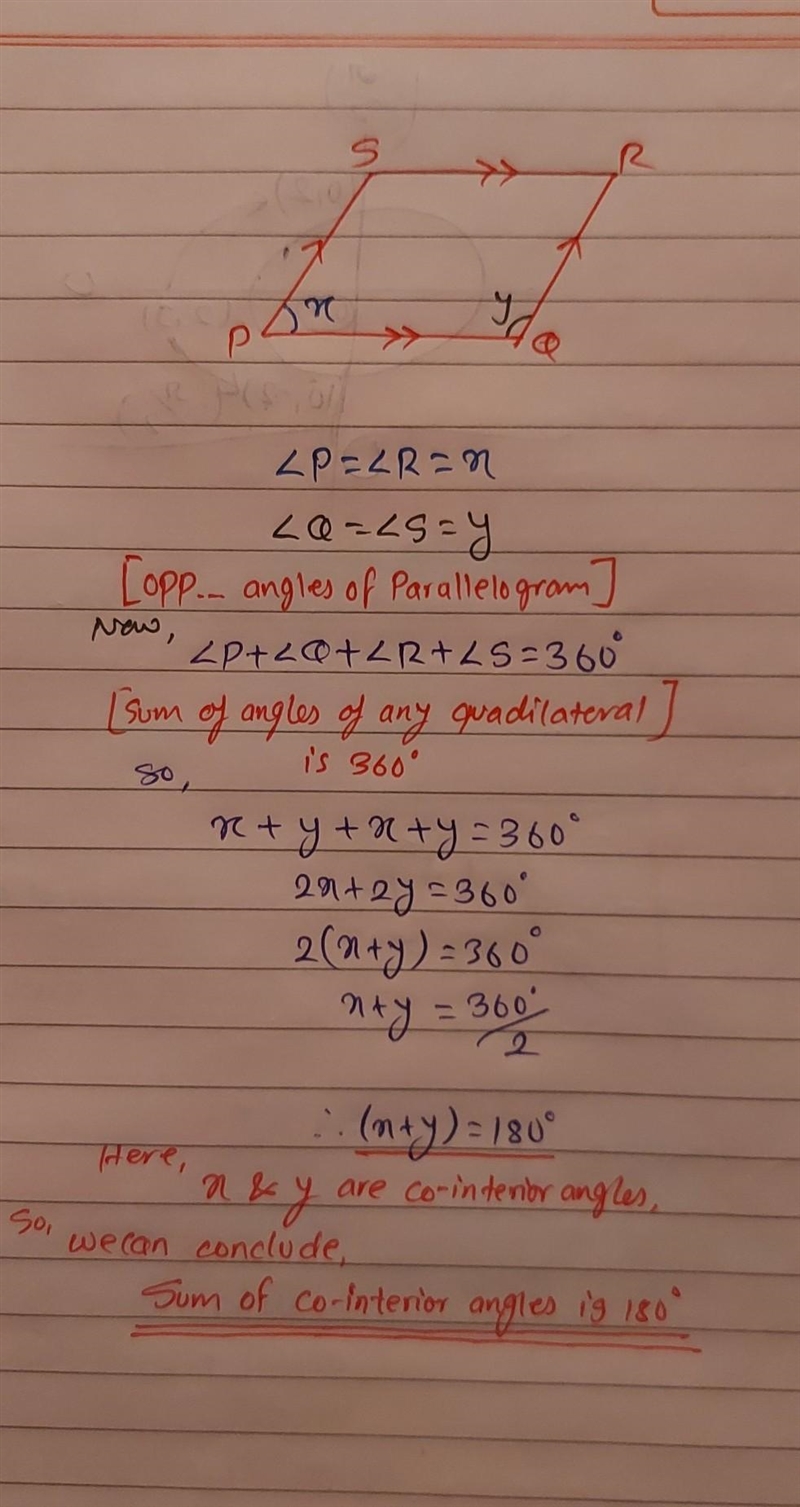 S R
x y
P Q
∠P=∠R=x
∠Q=∠S=y
[opp.. angles of Parallelogram]
Now,
∠P+∠Q+∠R+∠S=360°
[Sum of angles of any quadilateral]
is 360°
So,
x+y+x+y=360°
2x+2y=360°
2(x+y)=360°
x+y=360°/2
∴(x+y)=180°
Here,
x & y are co-interior angles,
So, we can conclude,
Sum of co-interior angles is 180°